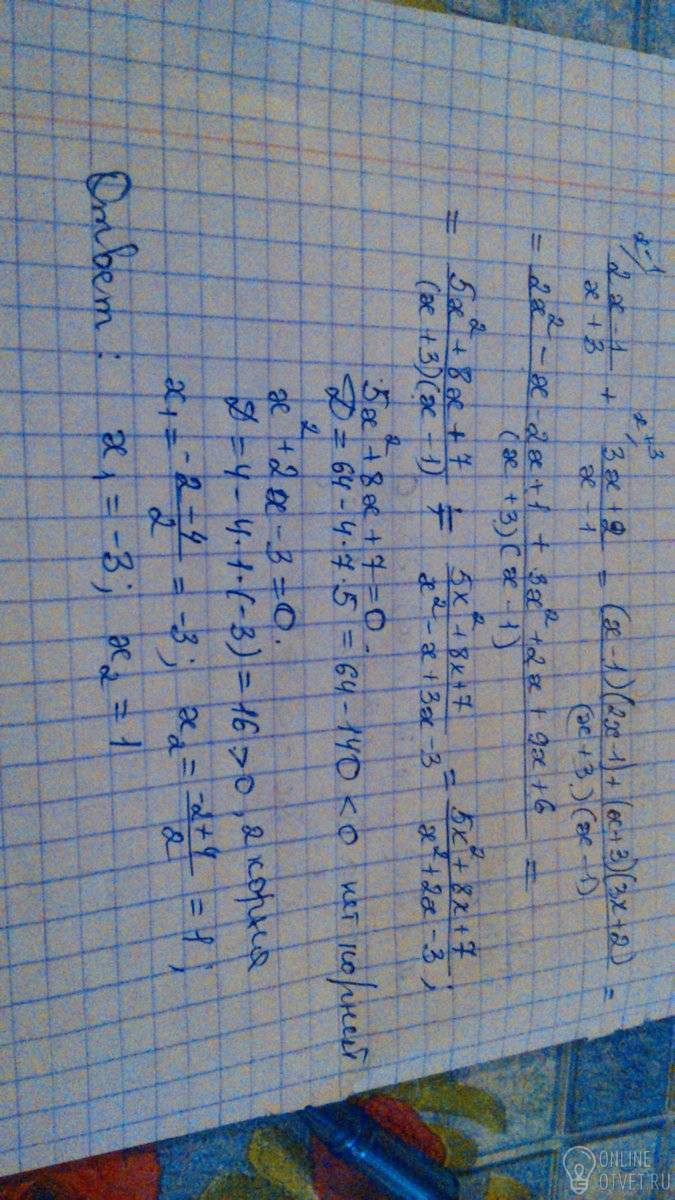 x-1/ (2x-1)/(x+3) + x+3/ (3x+2)/(x-1) = ((x-1)(2x-1)+(x+3)(3x+2))/((x+3)(x-1)) =
= (2x²-x-2x+1+3x²+2x+9x+6)/((x+3)(x-1)) =
= (5x²+8x+7)/((x+3)(x-1)) = (5x²+8x+7)/(x²-x+3x-3) = (5x²+8x+7)/(x²+2x-3);
5x²+8x+7=0.
D=64-4·7·5=64-140<0 нет
x²+2x-3=0.
D=4-4·1·(-3)=16>0, 2 корня
x₁=(-2-4)/2=-3; x₂=(-2+4)/2=1;
Ответ: x₁=-3; x₂=1
ONLINE
OTVET.RU